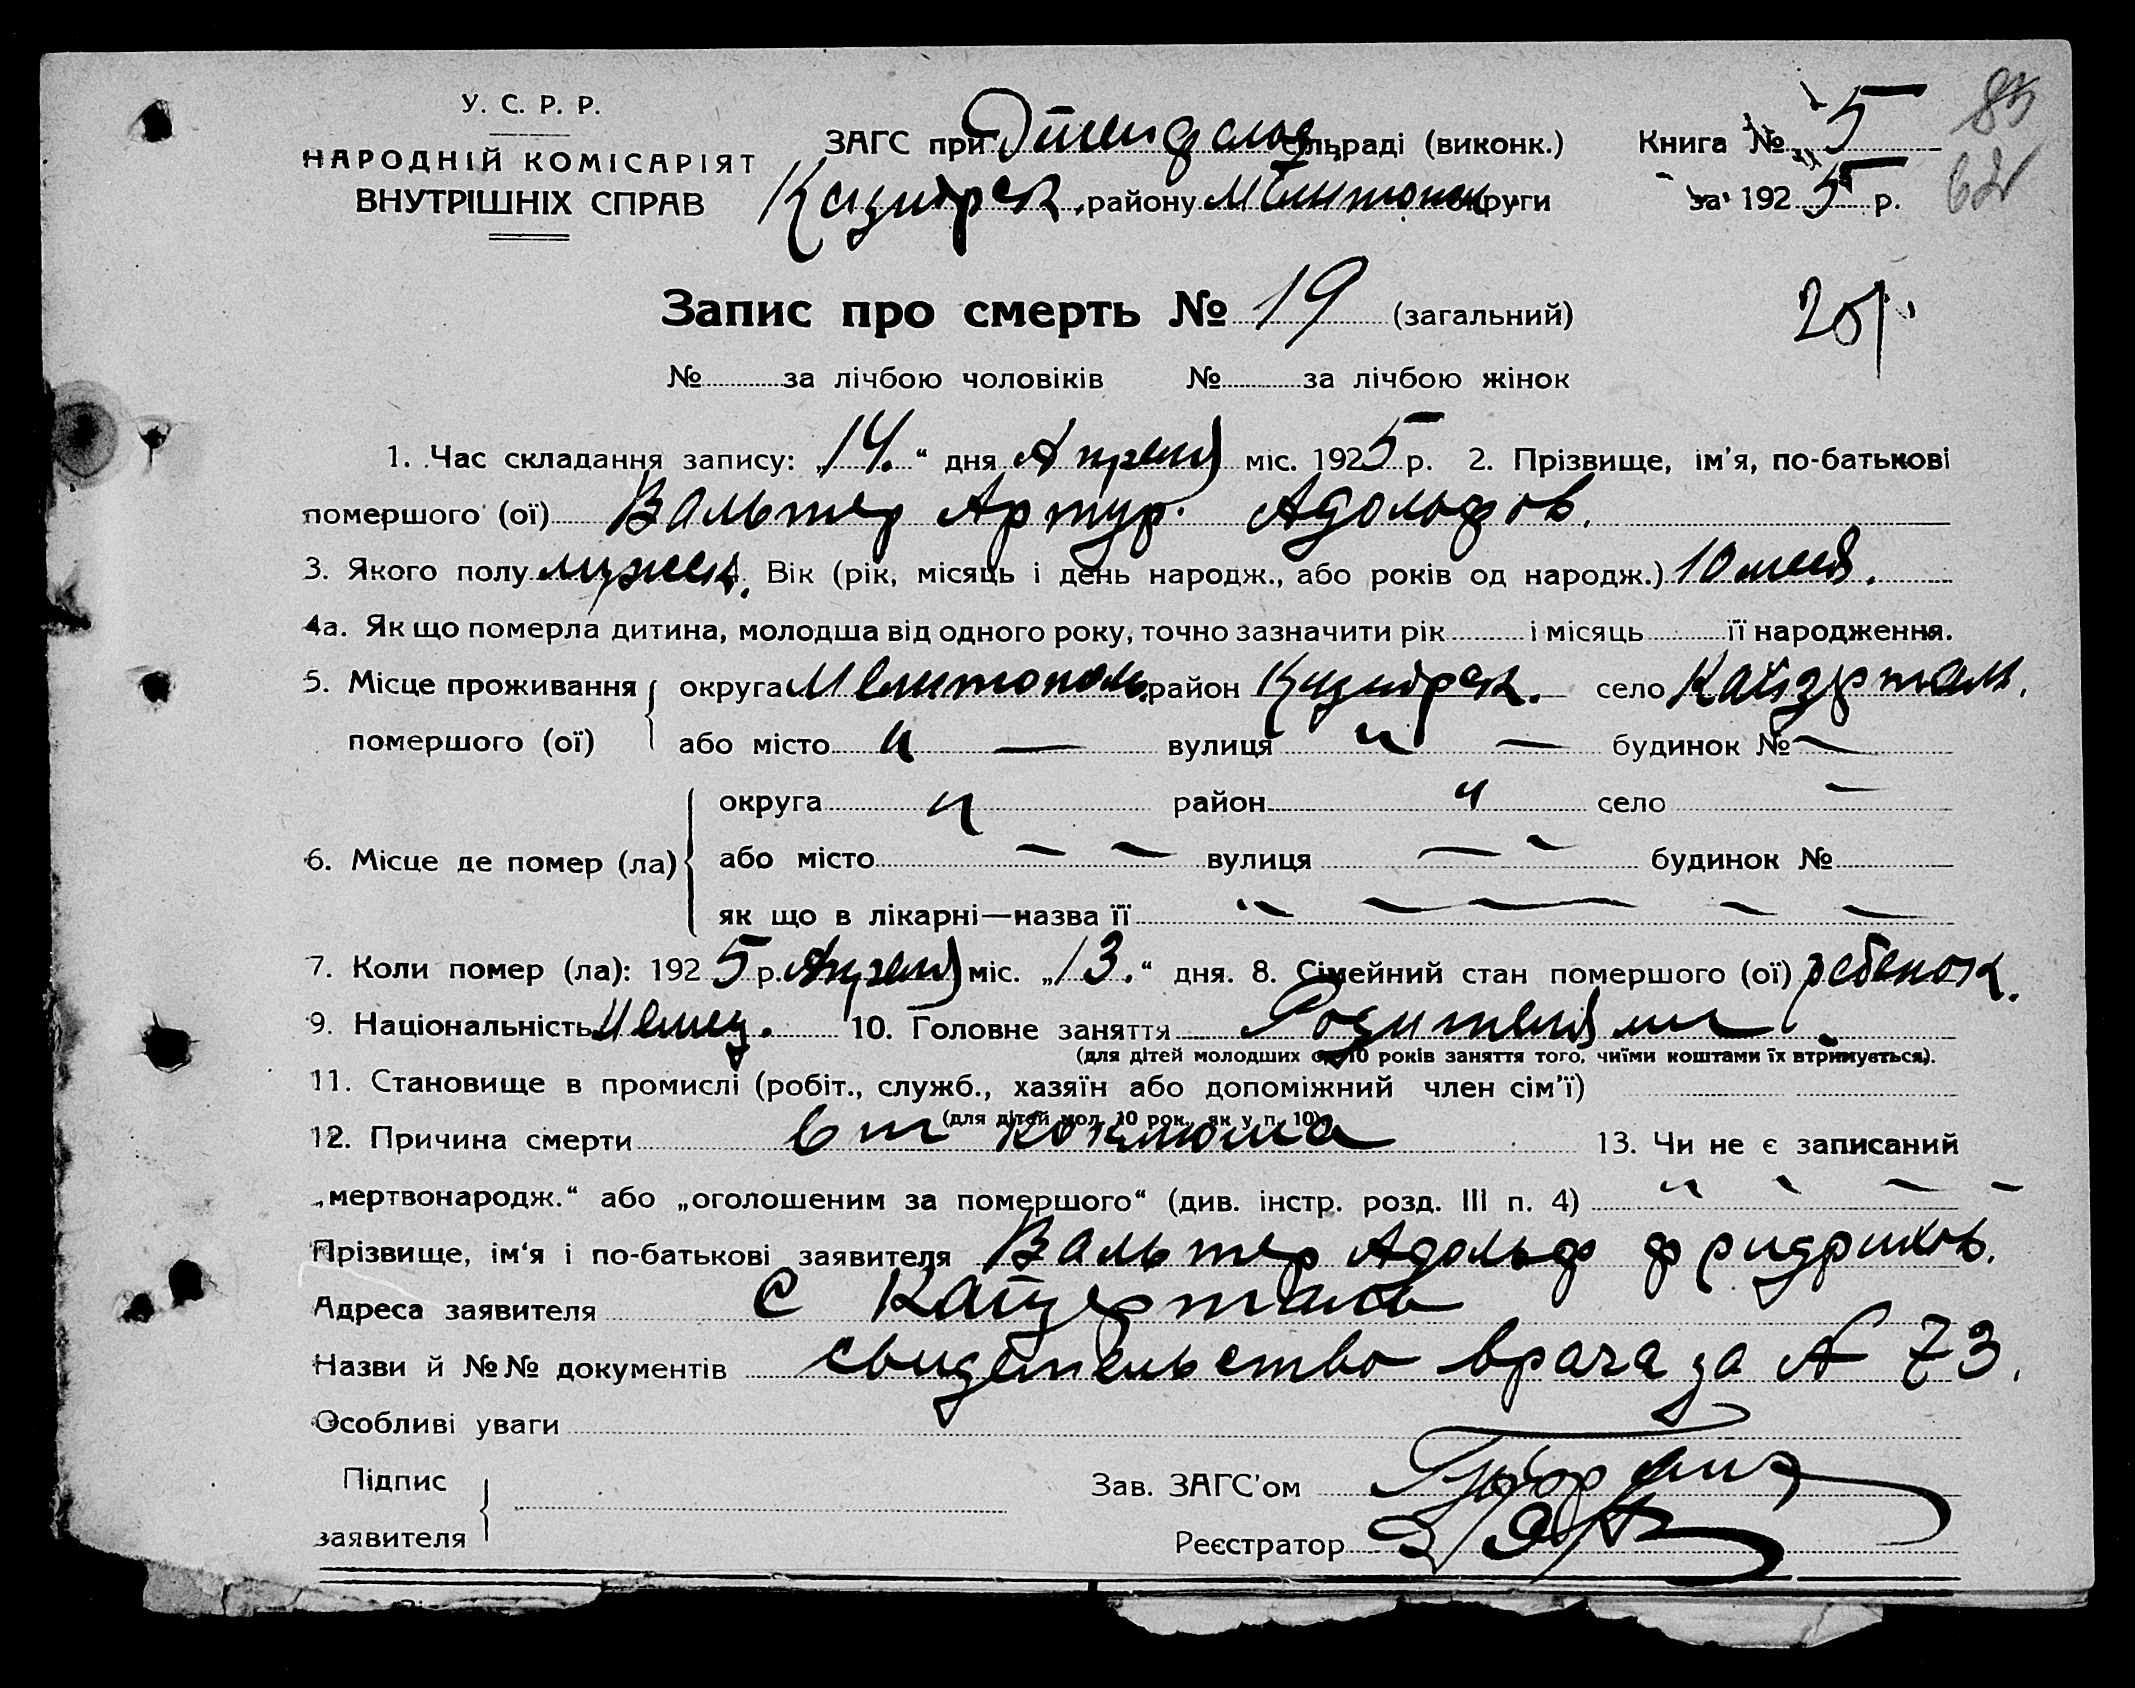 У. С. Р. Р.
НАРОДНІЙ КОМІСАРІЯТ
ВНУТРІШНІХ СПРАВ
ЗАГС при Эйгенфельд сільраді (виконк.)
району Мелитополь округи
Книга № 5
за 1925 р.
83
62
Запис про смерть № 19 (загальний)
№ за лічбою чоловіків № за лічбою жінок
1. Час складання запису: „14.“ дня Апреля міс. 1925 р. 2. Прізвище, ім'я, по-батькові
помершого (ої) Вальтер Артур. Адольфов.
3. Якого полу мужск. Вік (рік, місяць і день народж., або років од народж.) 10 меся.
4а. Як що померла дитина, молодша від одного року, точно зазначити рік і місяць її народження.
5. Місце проживання помершого (ої) округа Мелитополь. район село Кайзерталь.
або місто " — вулиця " — будинок № —
6. Місце де помер (ла) округа " район " село —
або місто — — вулиця — — будинок №
як що в лікарні—назва її " — — — — —
7. Коли помер (ла): 1925 р. Апреля міс. „13.“ дня. 8. Сімейний стан помершого (ої) ребенок.
9. Національність Немец. 10. Головне заняття Родителями
(для дітей молодших од 10 років заняття того, чиїми коштами їх втримується).
11. Становище в промислі (робіт., служб., хазяїн або допоміжний член сім'ї)
(для дітей мол. 10 рок. як у п. 10)
12. Причина смерти от коклюша 13. Чи не є записаний
„мертвонародж.“ або „оголошеним за помершого“ (див. інстр. розд. III п. 4) " — — —
Прізвище, ім'я і по-батькові заявителя Вальтер Адольф Фридрихов.
Адреса заявителя с Кайзерталь
Назви й №№ документів свидетельство врача за № 73.
Особливі уваги
Підпис
заявителя
Зав. ЗАГС'ом
Реєстратор